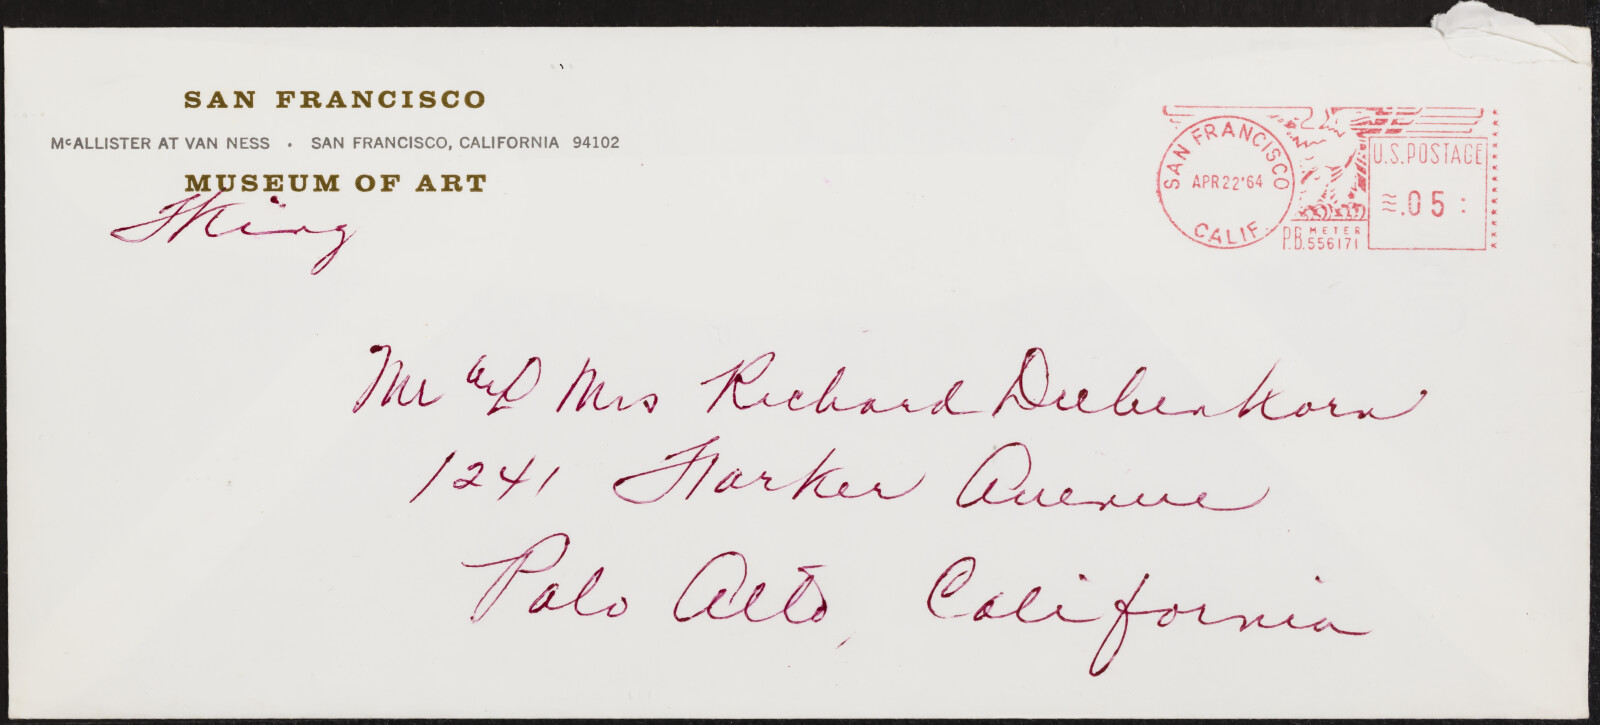 SAN FRANCISCO
McALLISTER AT VAN NESS · SAN FRANCISCO, CALIFORNIA 94102
MUSEUM OF ART
King
SAN FRANCISCO
APR 22 '64
CALIF.
U.S. POSTAGE
.05
P.B. METER
556171
Mr and Mrs Richard Diebenkorn
1241 Harker Avenue
Palo Alto, California